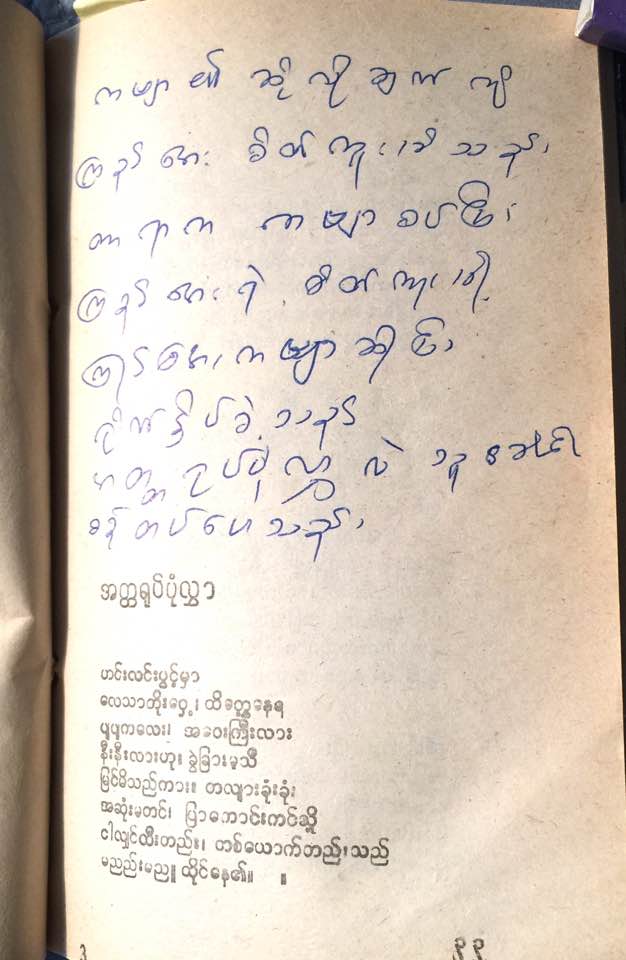 ကဗျာ၏ ဆိုလိုချက် ကို
ကြည်အေး စိတ်ကူးမိသည်၊
တာရာက ကဗျာစပ်ပြီး
ကြည်အေးရဲ့ စိတ်ကူးမို့
ကြည်အေး၊ ကဗျာဆိုပြီး
ခဲ့သည်
အတ္တရုပ်ပုံလွှာ လဲ သူ ခေါင်း
စဉ်တပ်ပေးသည်၊
အတ္တရုပ်ပုံလွှာ
ဟင်းလင်းပွင့်မှာ
လေသာတိုးဝှေ့၊
ပျပျကလေး၊ အဝေးကြီးလား
နီးနီးလားဟု၊ ခွဲခြားမသိ
မြင်မိသည်ကား၊ တလျားခုံးခုံး
အဆုံးမတင်၊ ပြာကောင်းကင်သို့
ငါလျှင်ထီးတည်း၊ တစ်ယောက်တည်းသည်
မညည်းမညူ ထိုင်နေ၏။ ။
၃ ၃၃